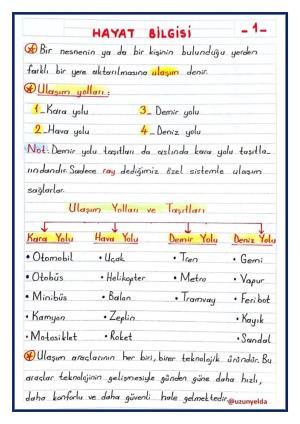 HAYAT BİLGİSİ
- 1 -
Bir nesnenin ya da bir kişinin bulunduğu yerden
farklı bir yere aktarılmasına ulaşım denir.
Ulaşım yolları:
1_Kara yolu 3_ Demir yolu
2_Hava yolu 4_ Deniz yolu
Not: Demir yolu taşıtları da aslında kara yolu taşıtla-
rındandır. Sadece ray dediğimiz özel sistemle ulaşım
sağlarlar.
Ulaşım Yolları ve Taşıtları
Kara Yolu Hava Yolu Demir Yolu Deniz Yolu
• Otomobil • Uçak • Tren • Gemi
• Otobüs • Helikopter • Metro • Vapur
• Minibüs • Balon • Tramvay • Feribot
• Kamyon • Zeplin • Kayık
• Motosiklet • Roket • Sandal
Ulaşım araçlarının her biri, birer teknolojik üründür. Bu
araçlar teknolojinin gelişmesiyle günden güne daha hızlı,
daha konforlu ve daha güvenli hale gelmektedir.
@uzunyelda